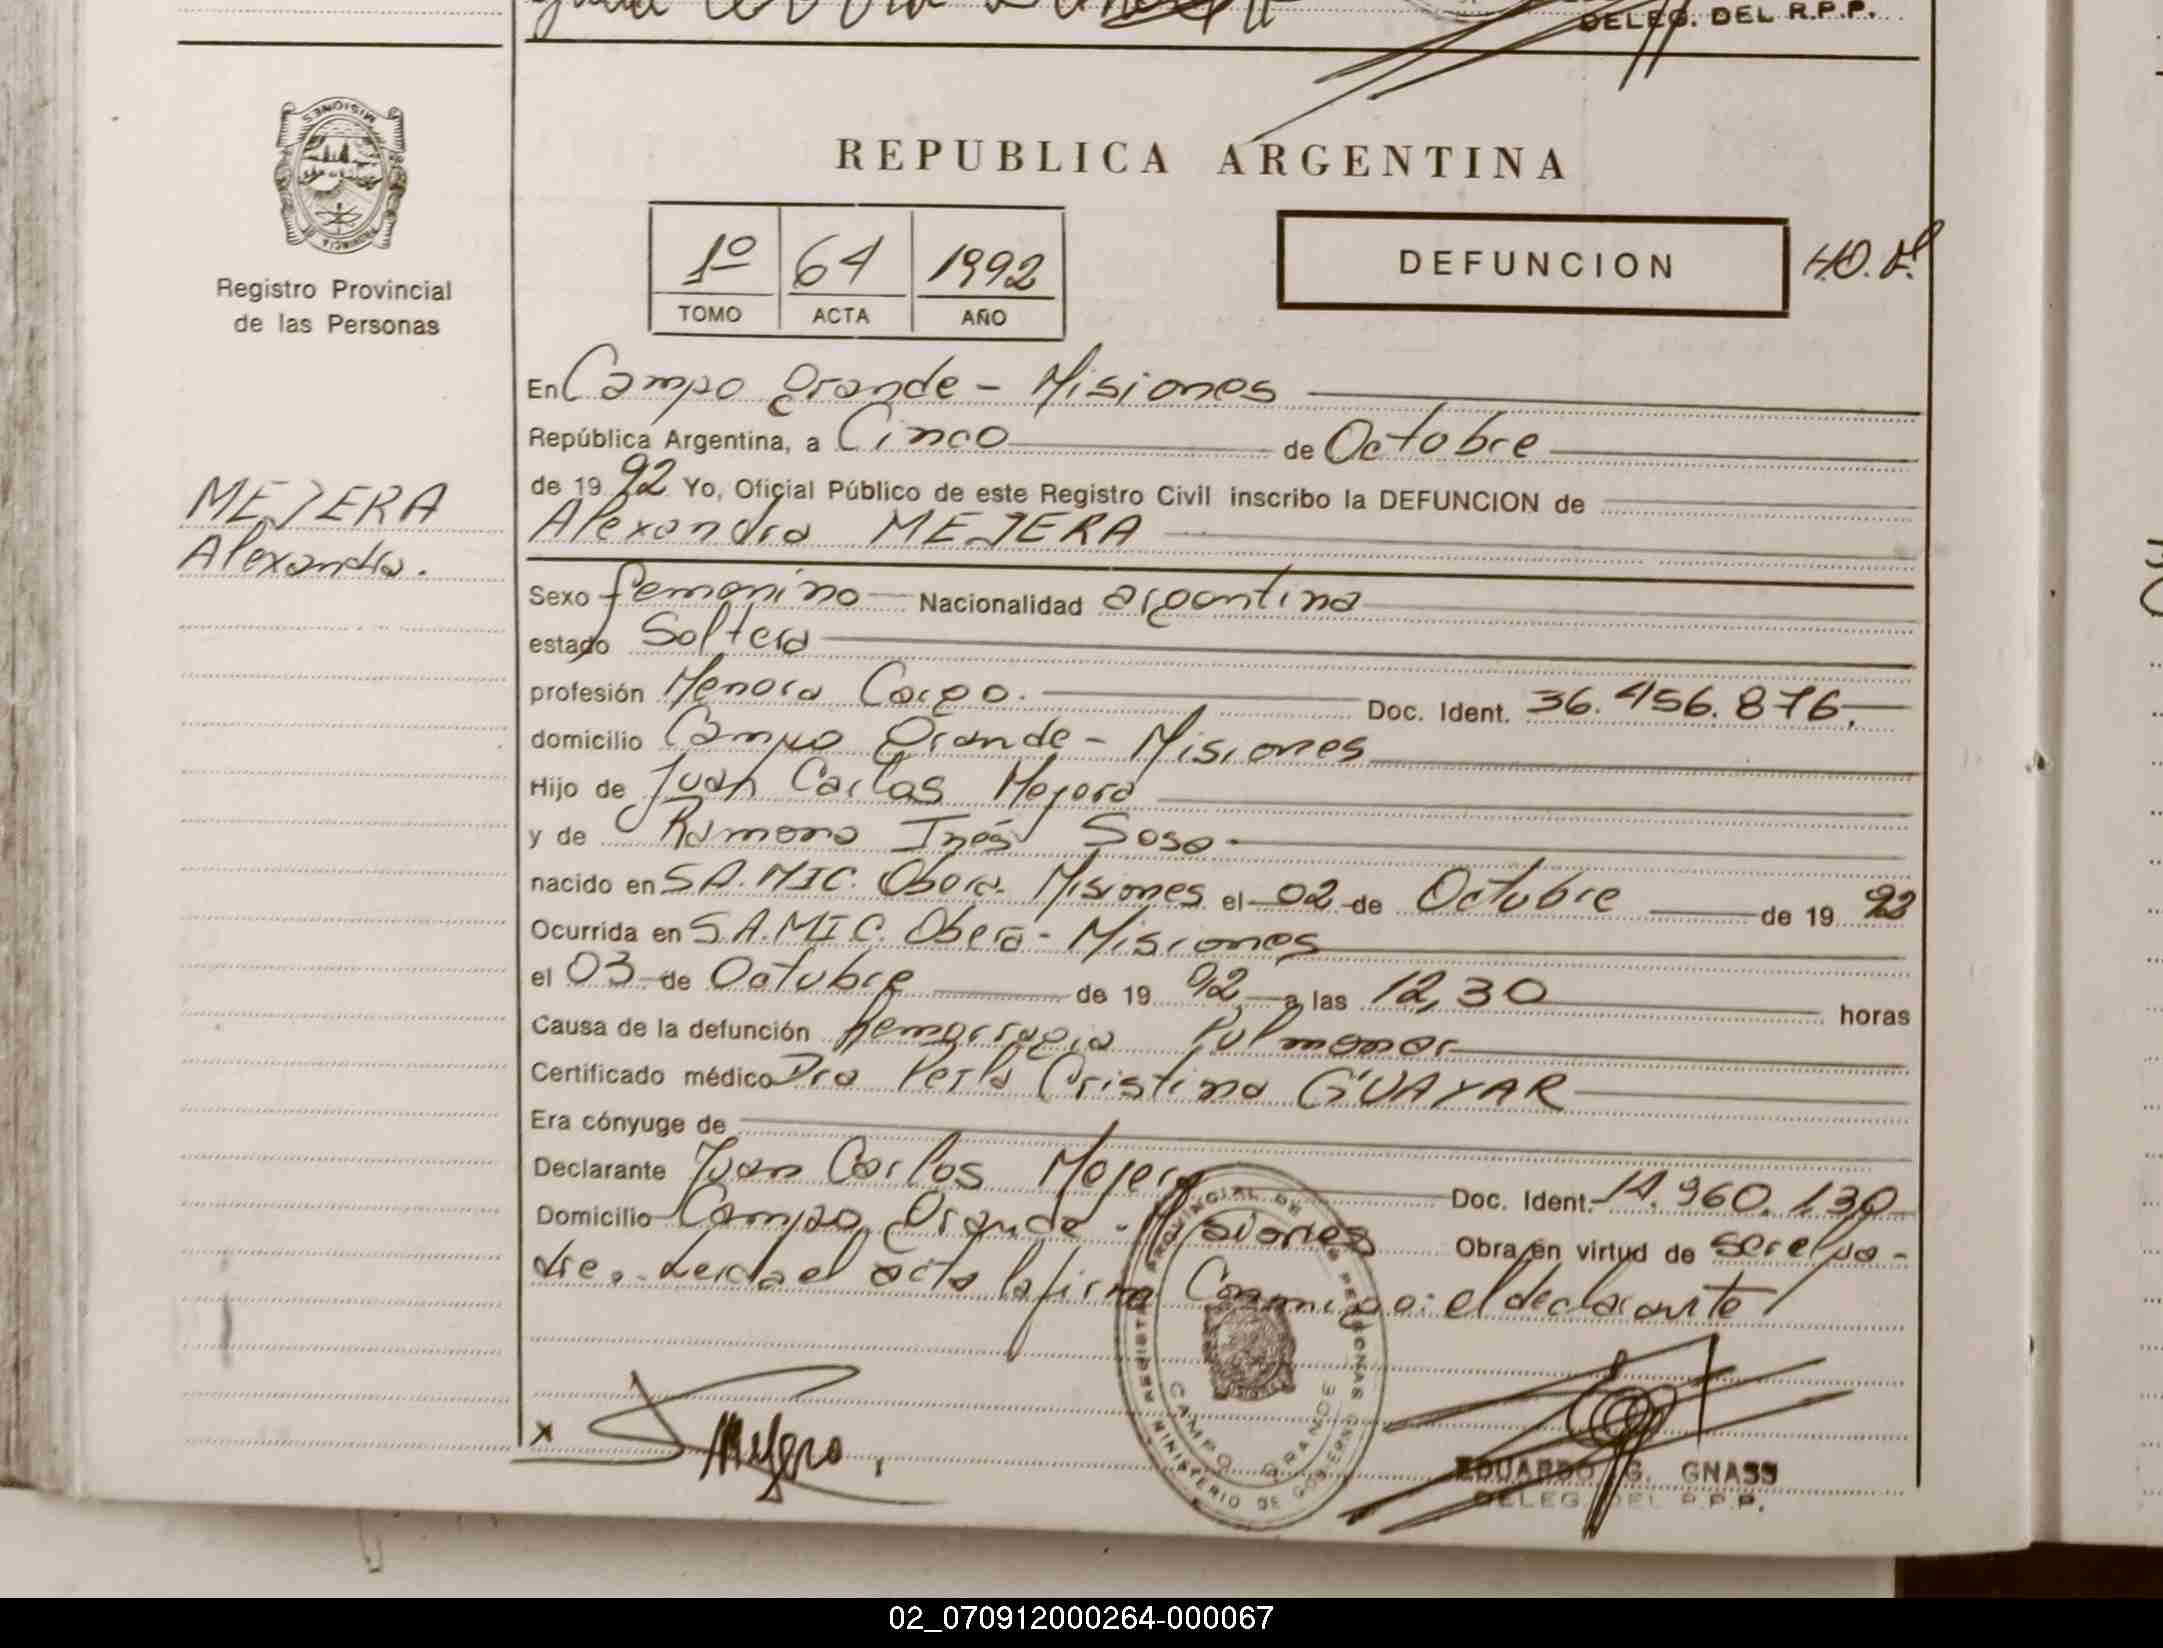 DELEG. DEL R.P.P.
MISIONES
PROVINCIA
Registro Provincial
de las Personas
REPUBLICA ARGENTINA
1º 64 1992
TOMO ACTA AÑO
DEFUNCION
En Campo Grande - Misiones
República Argentina, a Cinco de Octubre
de 19 92 Yo, Oficial Público de este Registro Civil inscribo la DEFUNCION de
Alexandra MEJERA
MEJERA
Alexandra.
Sexo femenino Nacionalidad argentina
estado Soltera
profesión Menora Cargo. Doc. Ident. 36.456.876.
domicilio Campo Grande - Misiones
Hijo de Juan Carlos Mejera
y de Ramona Inés Sosa
nacido en S.A.MIC. Obera. Misiones el 02 de Octubre de 19 92
Ocurrida en S.A.MIC. Oberá - Misiones
el 03 de Octubre de 19 92 a las 12,30 horas
Causa de la defunción hemorragia Pulmonar
Certificado médico Dra Perla Cristina GUAYAR
Era cónyuge de
Declarante Juan Carlos Mejera Doc. Ident. 14.960.130
Domicilio Campo Grande - Misiones Obra en virtud de ser el pa-
dre. Leida el acta la firma Conmigo: el declarante
REGISTRO PROVINCIAL DE LAS PERSONAS
MINISTERIO DE GOBIERNO
CAMPO GRANDE
x
EDUARDO G. GNASS
DELEG. DEL R.P.P.
02_070912000264-000067